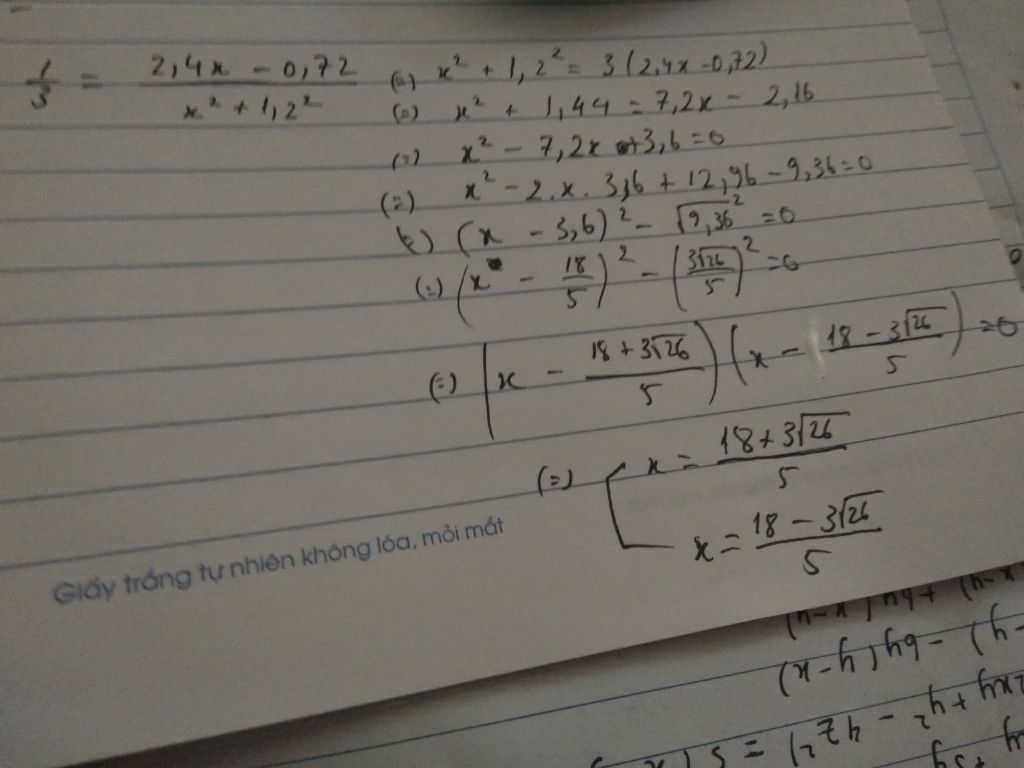 1/3 = (2,4x - 0,72)/(x² + 1,2²) (=) x² + 1,2² = 3(2,4x - 0,72)
(=) x² + 1,44 = 7,2x - 2,16
(=) x² - 7,2x + 3,6 = 0
(=) x² - 2.x.3,6 + 12,96 - 9,36 = 0
(=) (x - 3,6)² - √9,36² = 0
(=) (x - 18/5)² - (3√26/5)² = 0
(=) (x - (18 + 3√26)/5)(x - (18 - 3√26)/5) = 0
(=) [ x = (18 + 3√26)/5
x = (18 - 3√26)/5
Giấy trắng tự nhiên không lóa, mỏi mắt